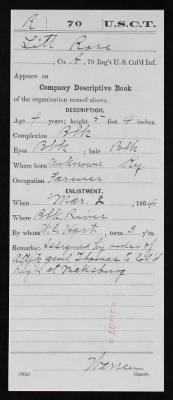 R 70 U.S.C.T.
Litt Rose
, Co. , 70 Reg't U. S. Col'd Inf.
Appears on
Company Descriptive Book
of the organization named above.
DESCRIPTION.
Age 4 years; height 5 feet 4 inches.
Complexion Blk
Eyes Blk ; hair Blk
Where born Unknown Ky.
Occupation Farmer
ENLISTMENT.
When Mar. 2 , 1864
Where Blk River
By whom W.C. Hart , term 3 y'rs.
Remarks: Assigned by order of
Adjt genl Thomas to Col'd
Regt at Vicksburg
Warren
Copyist.